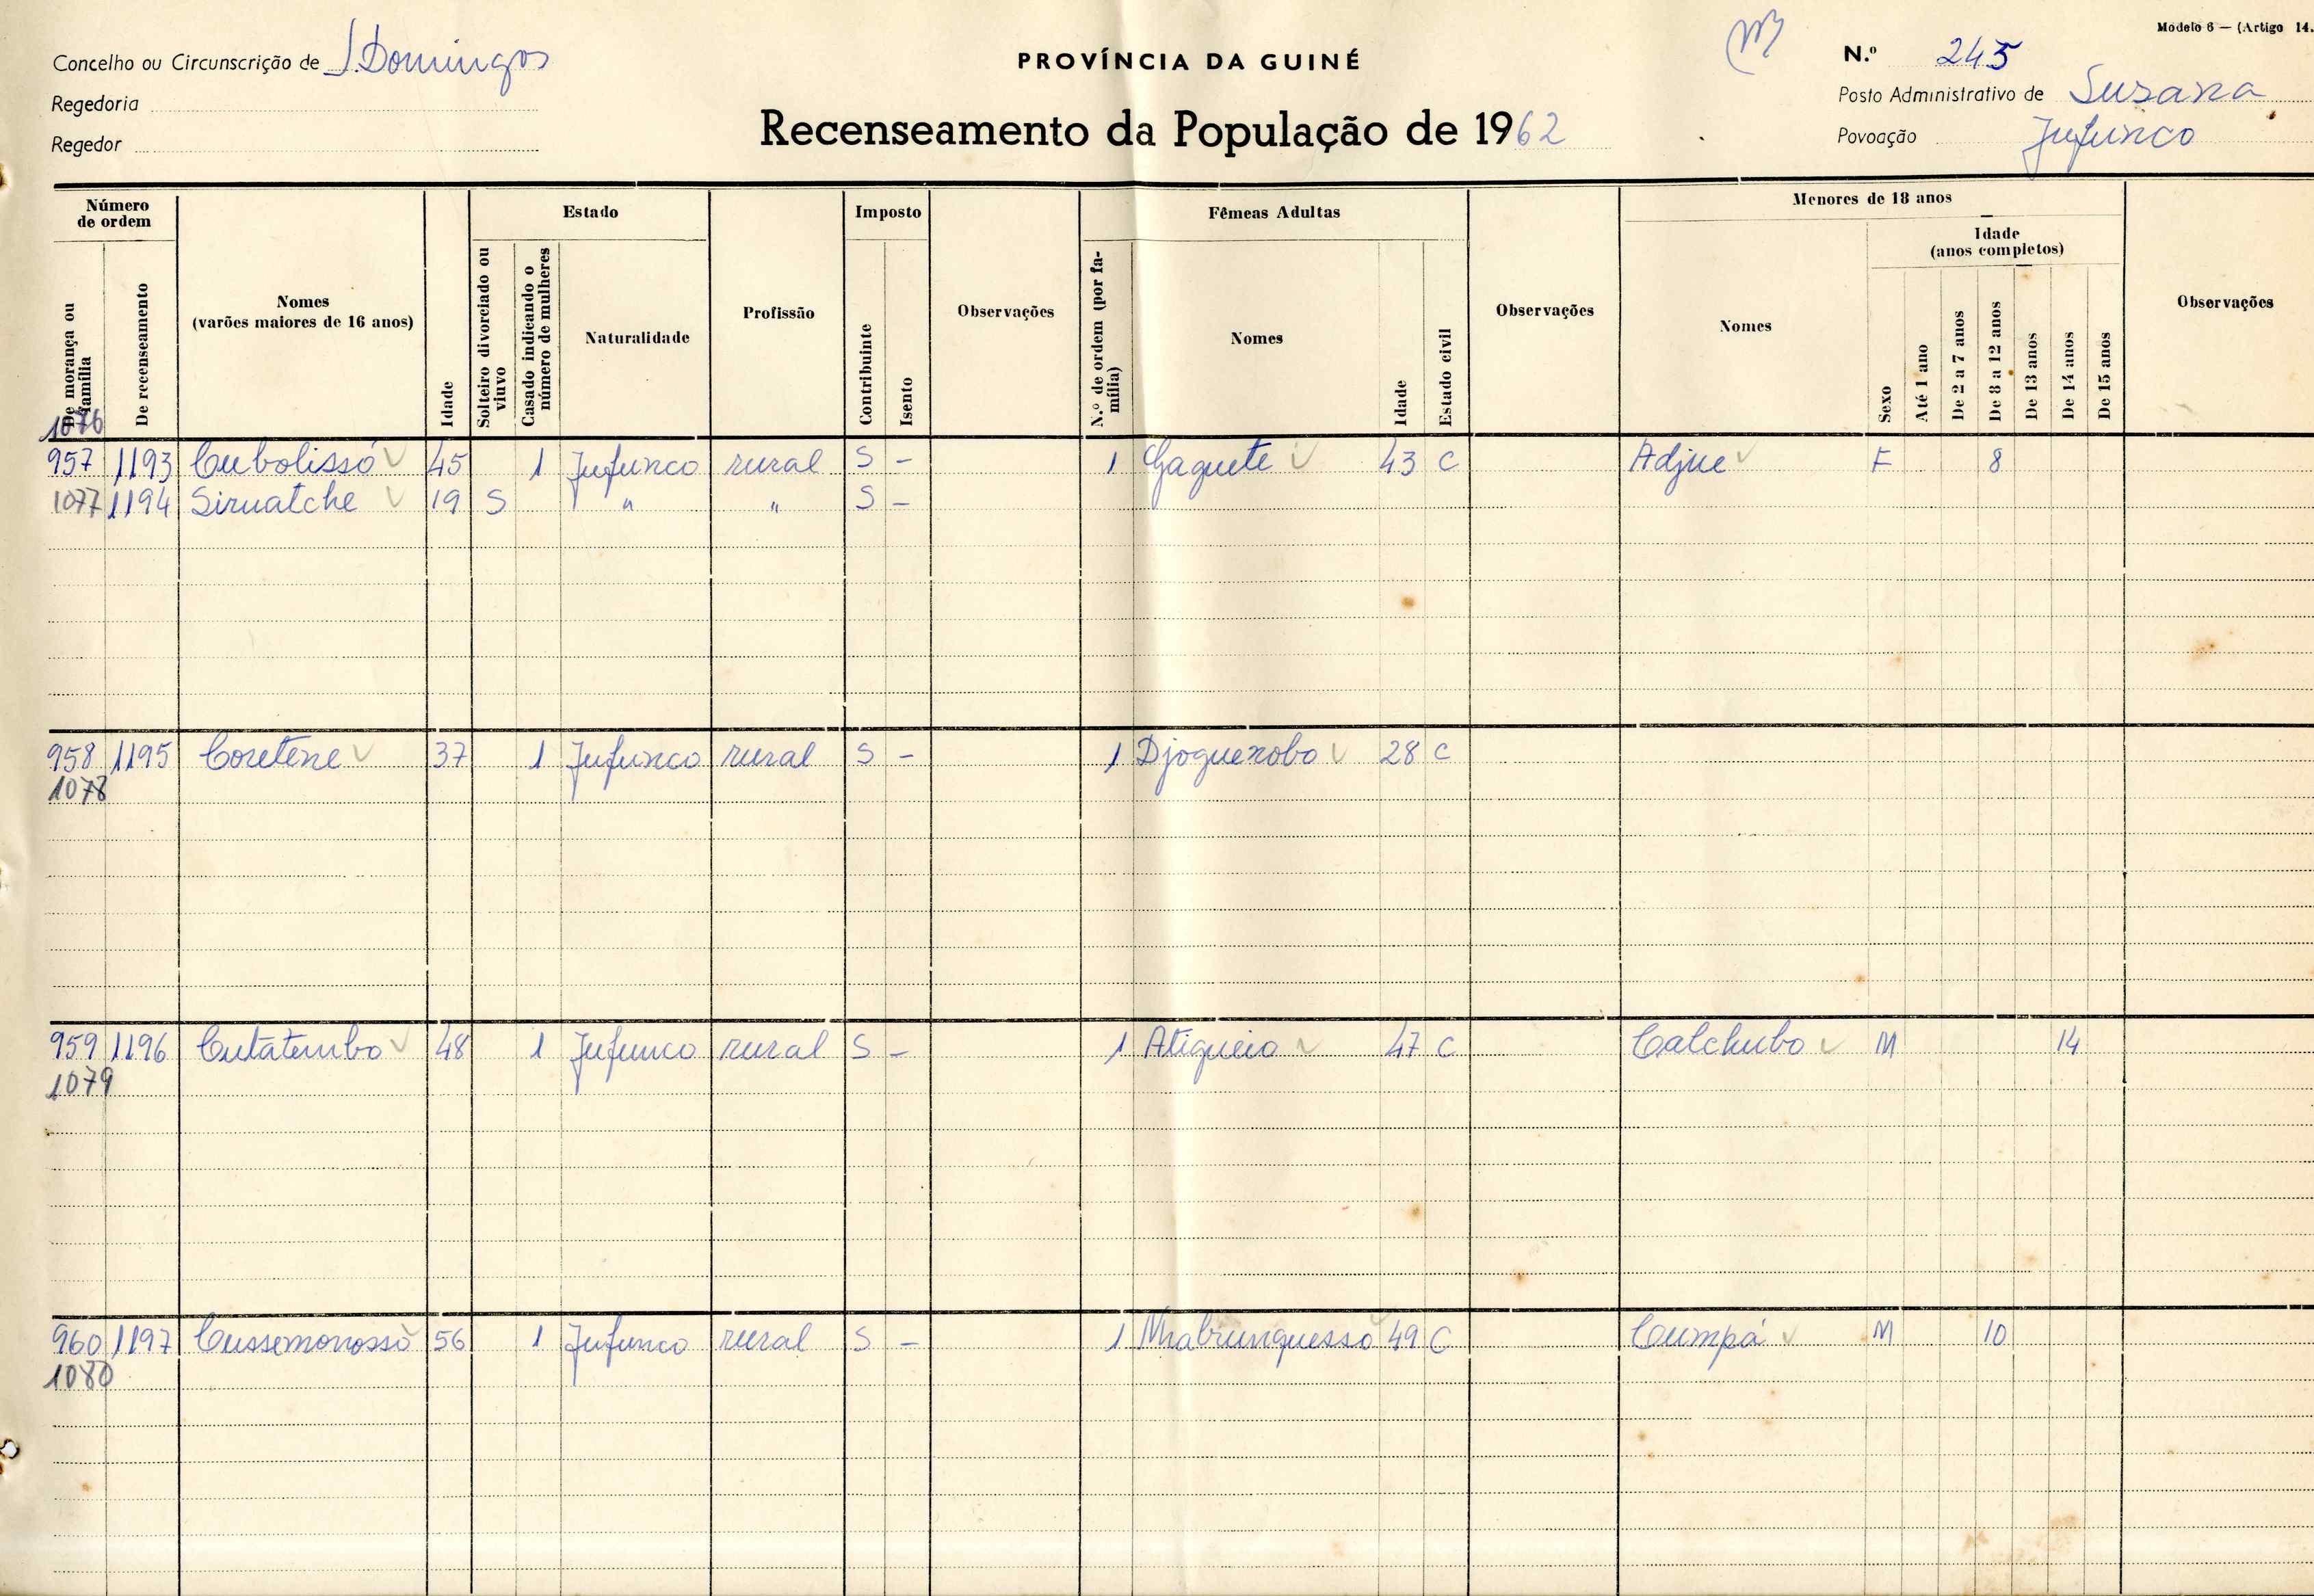 Modelo 6 — (Artigo 14.
Concelho ou Circunscrição de S. Domingos
PROVÍNCIA DA GUINÉ
N.º 245
Regedoria
Posto Administrativo de Suzana
Regedor
Recenseamento da População de 1962
Povoação Jufunco
Número de ordem
De morança ou família
De recenseamento
Nomes
(varões maiores de 16 anos)
Idade
Estado
Solteiro divorciado ou viuvo
Casado indicando o número de mulheres
Naturalidade
Profissão
Imposto
Contribuinte
Isento
Observações
Fêmeas Adultas
N.º de ordem (por família)
Nomes
Idade
Estado civil
Observações
Menores de 18 anos
Nomes
Sexo
Idade
(anos completos)
Até 1 ano
De 2 a 7 anos
De 8 a 12 anos
De 13 anos
De 14 anos
De 15 anos
Observações
1076
957 1193 Cubolissó 45 1 Jufunco rural S - 1 Gaguete 43 C Adjue F 8
1077 1194 Siruatche 19 S " " S -
958 1195 Coretene 37 1 Jufunco rural S - 1 Djoguenobo 28 C
1078
959 1196 Cutatembo 48 1 Jufunco rural S - 1 Atigueio 47 C Catchubo M 14
1079
960 1197 Cussemonosso 56 1 Jufunco rural S - 1 Nhabrunguesso 49 C Cumpá M 10
1080